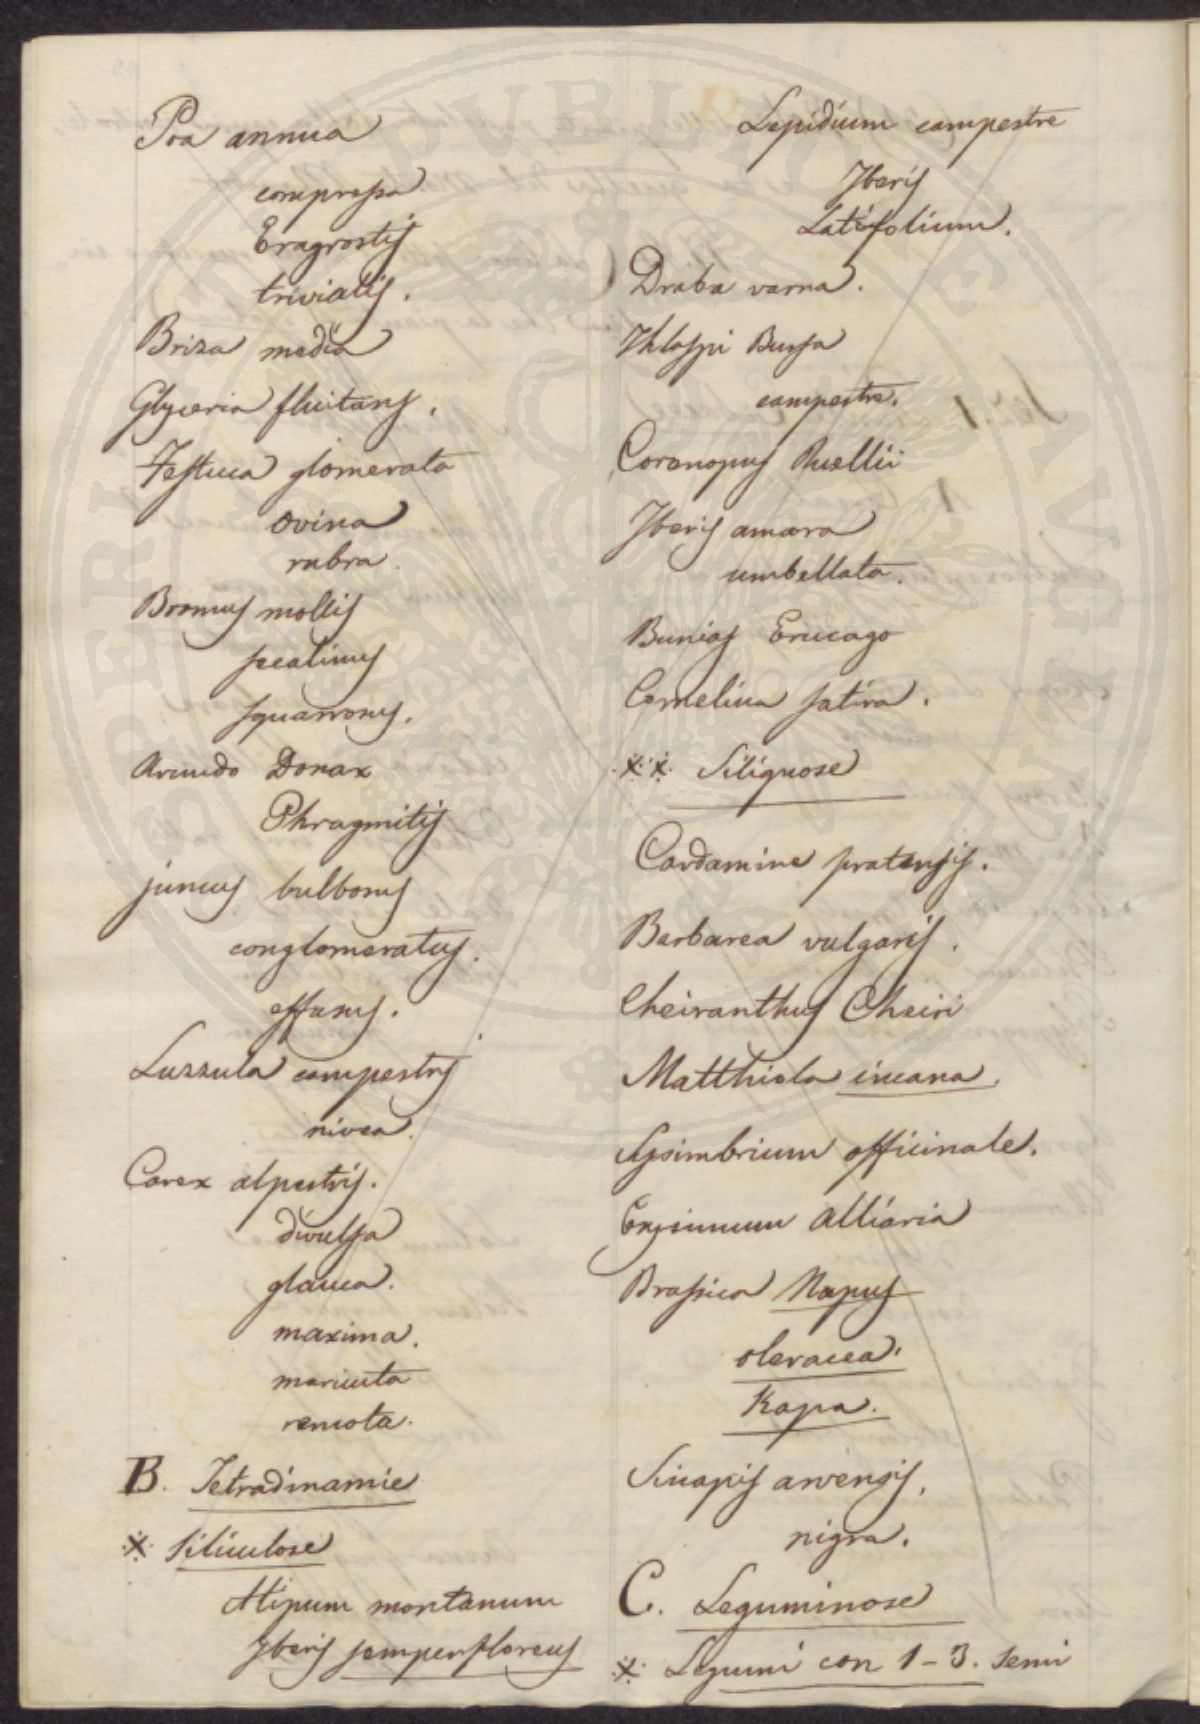 Poa annua
compressa
Eragrostis
trivialis.
Briza media
Glyceria fluitans.
Festuca glomerata
ovina
rubra
Bromus mollis
secalinus
squarrosus.
Arundo Donax
Phragmitis
juncus bulbosus
conglomeratus.
effusus.
Luzzula campestris
nivea.
Carex alpestris.
divulsa
glauca.
maxima.
remota.
B. Tetradinamie
* Siliculose
Alissum montanum
Iberis semperflorens
Lepidium campestre
Iberis
Latifolium.
Draba verna.
Thlaspi Bursa
campestre.
Coronopus Ruellii
Iberis amara
umbellata.
Bunias Erucago
Camelina sativa.
** Siliquose
Cardamine pratensis.
Barbarea vulgaris.
Cheiranthus Cheiri
Matthiola incana.
Sysimbrium officinale.
Erysimum Alliaria
Brassica Napus
oleracea.
Rapa.
Sinapis arvensis.
nigra.
C. Leguminose
* Legumi con 1-3. semi
SPERITE PUBLICE AVGETVR